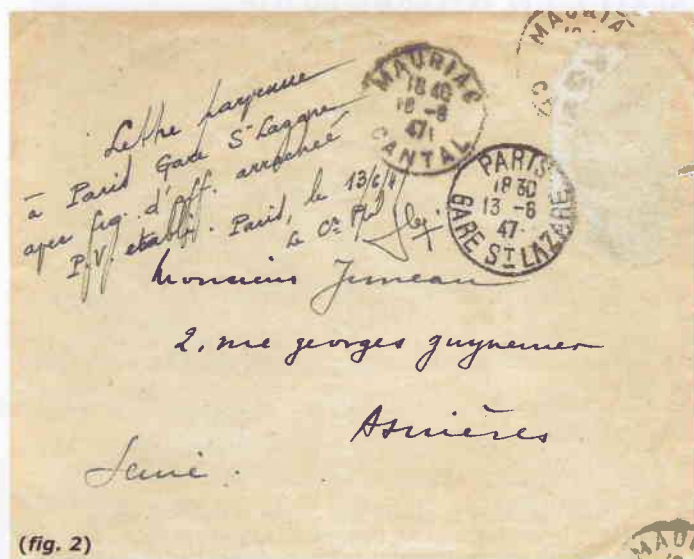 Lettre parvenue
à Paris Gare St Lazare
avec fig. d'aff. arrachée
P.V. établi. Paris, le 13/6/47
le Cr Pal
MAURIAC
18 40
CANTAL
47
MAURIA
PARIS
18 30
13 -6
47
GARE ST LAZARE
Monsieur Jumeau
2, rue georges guynemer
Asnières
Seine.
(fig. 2)
MAU